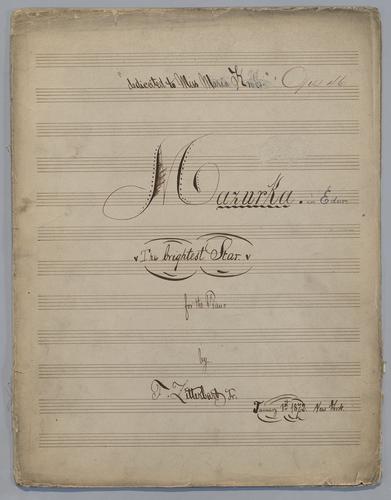 "dedicated to Miss Maria
Mazurka. in Edur
The brightest Star
for the Piano
by
F. Zitterbart Jr.
January 1st 1873. New York.